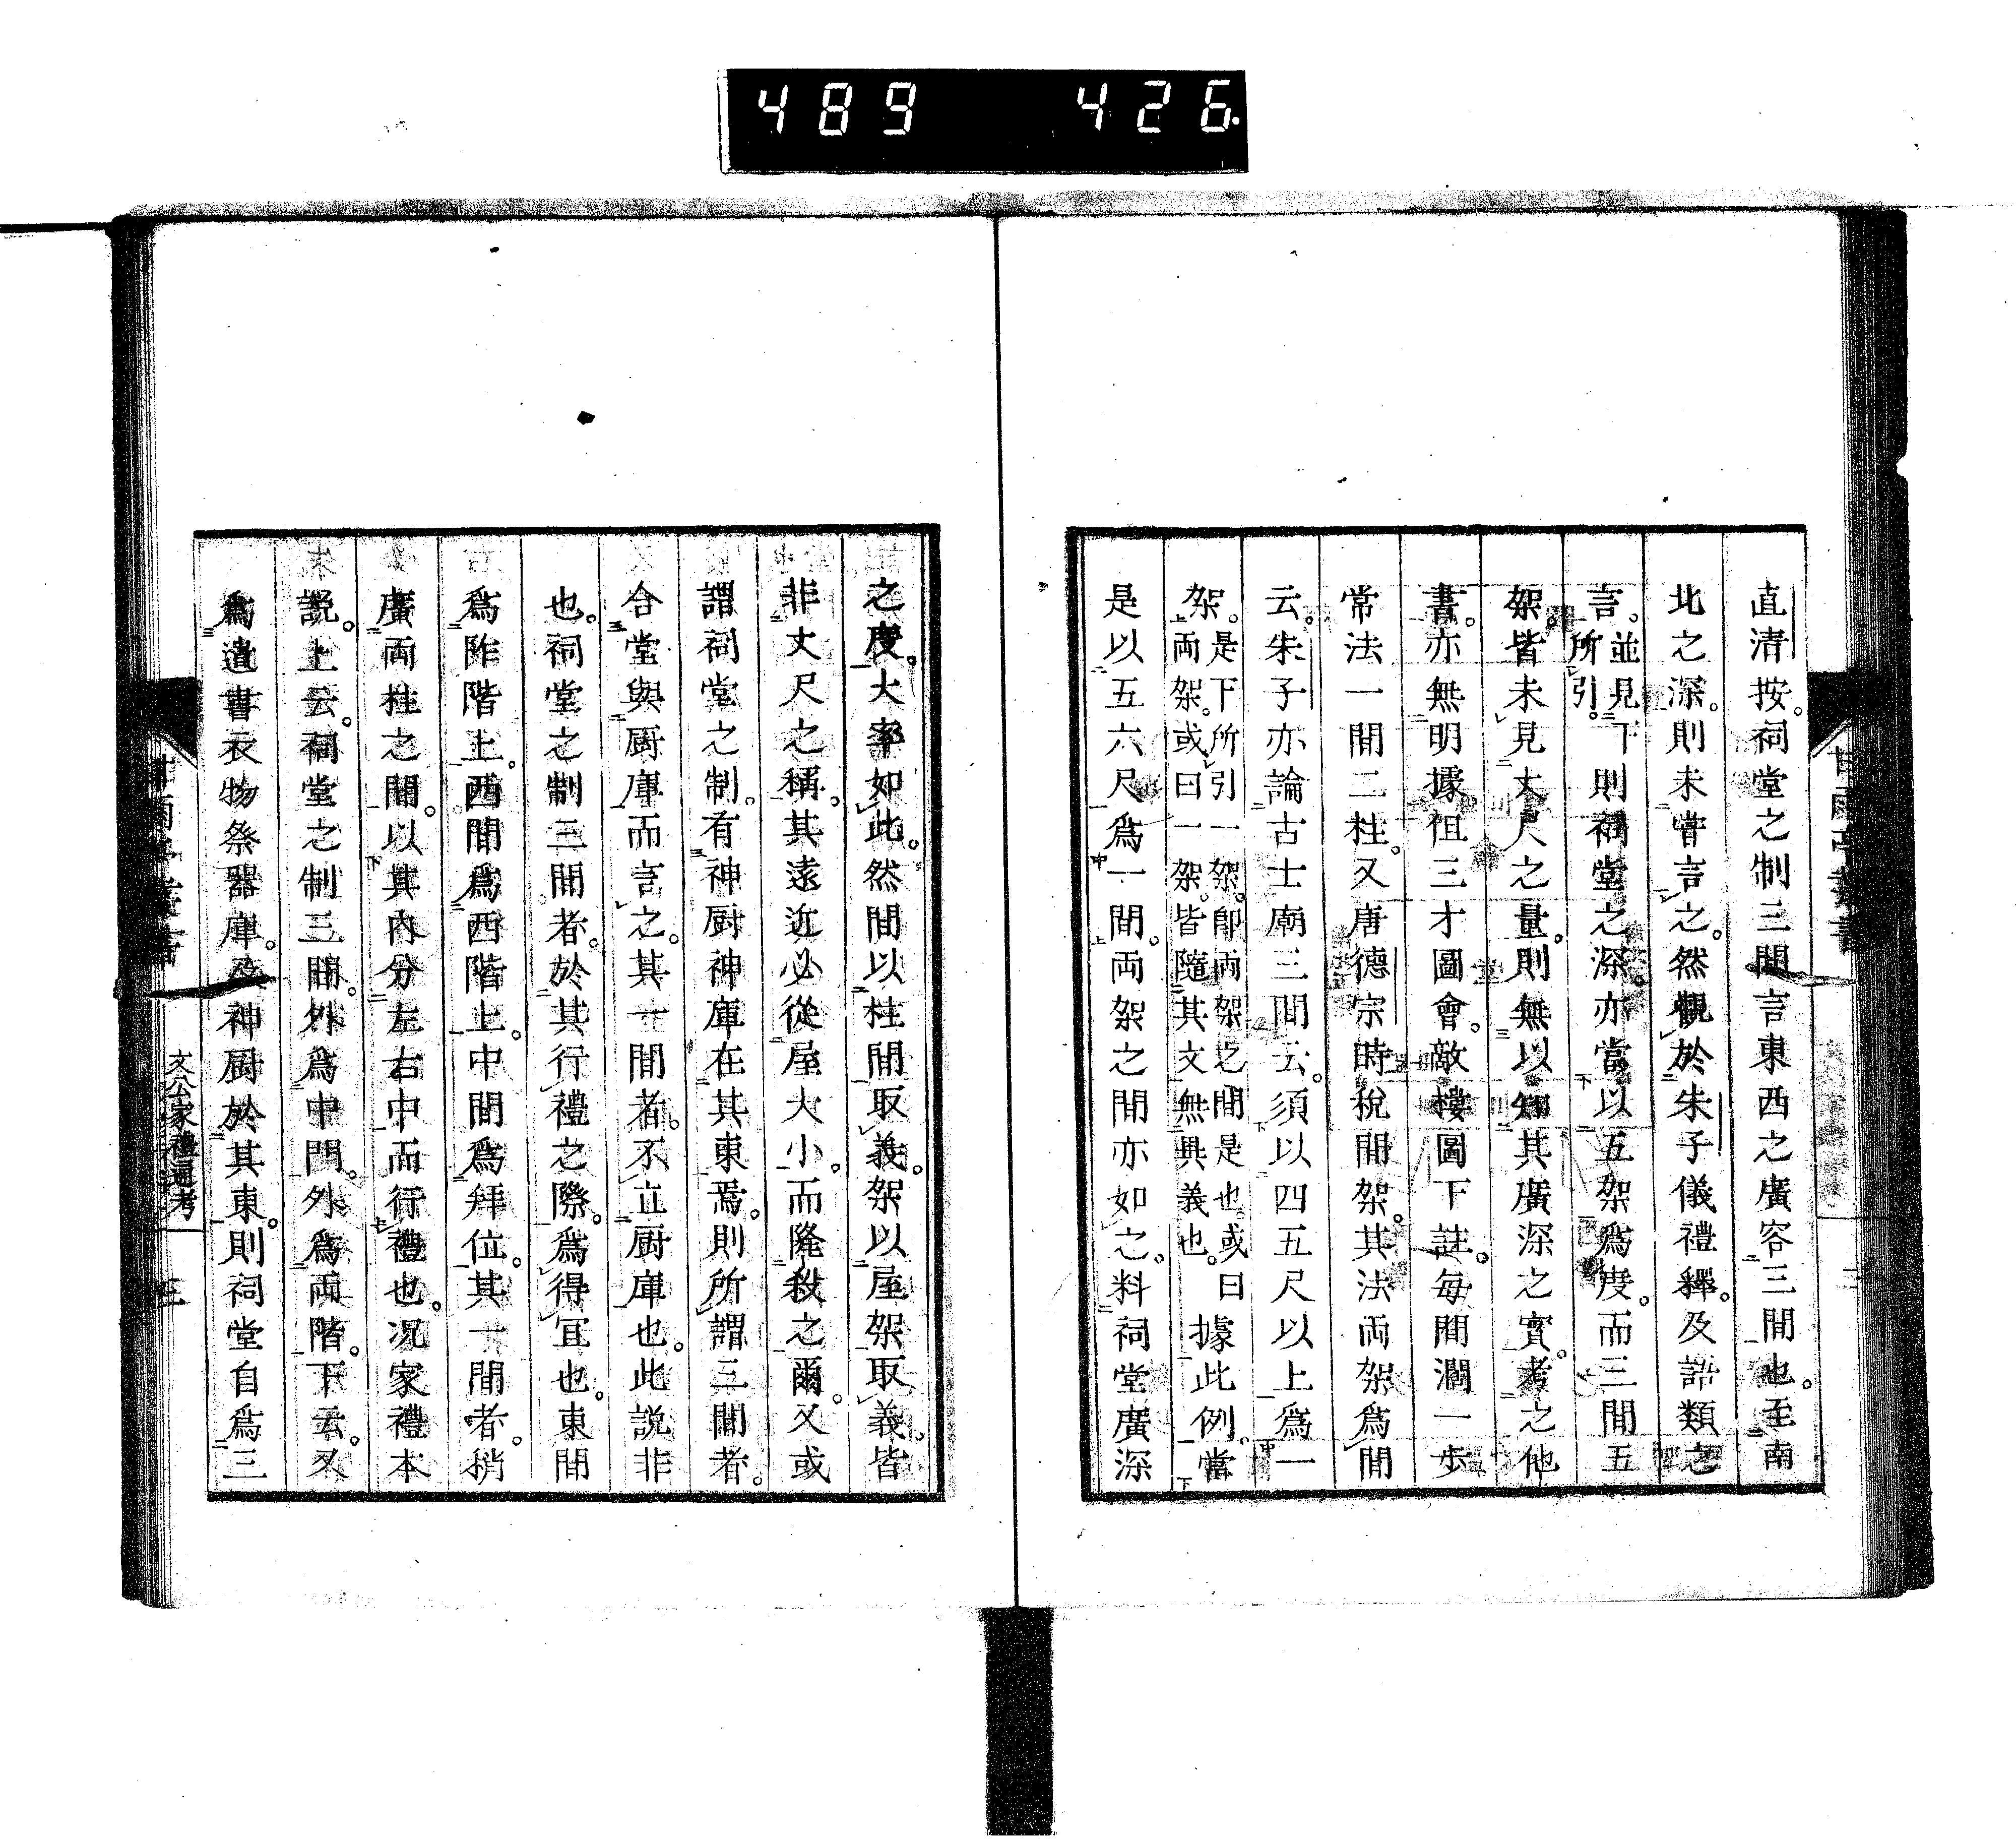 489 426.
直清按。祠堂之制三間言東西之廣容三間也。至南
北之深。則未嘗言之。然觀於朱子儀禮釋。及語類之
言。並見下所引。則祠堂之深。亦當以五架為度。而三間五
架。皆未見丈尺之量。則無以知其廣深之實。考之他
書。亦無明據。但三才圖會。敵樓圖下註。每間濶一步
常法一間二柱。又唐德宗時稅間架。其法兩架為間
云。朱子亦論古士廟三間云。須以四五尺以上為一
架。是下所引一架。即兩架之間是也。或曰兩架。或曰一架。皆隨其文無異義也。據此例。當
是以五六尺為一間。両架之間亦如之。料祠堂廣深
之度。大率如此。然間以柱間取義。架以屋架取義。皆
非丈尺之稱。其遠近必從屋大小。而隆殺之爾。又或
謂祠堂之制。有神厨神庫在其東焉。則所謂三間者。
合堂與厨庫而言之。其一間者。不立厨庫也。此説非
也。祠堂之制三間者。於其行禮之際。為得宜也。東間
為阼階上。西間為西階上。中間為拜位。其一間者。稍
廣両柱之間。以其內分左右中而行禮也。况家禮本
説。上云。祠堂之制三間。外為中門。外為両階。下云。又
為遺書衣物祭器庫。及神厨於其東。則祠堂自為三
文公家禮通考
三